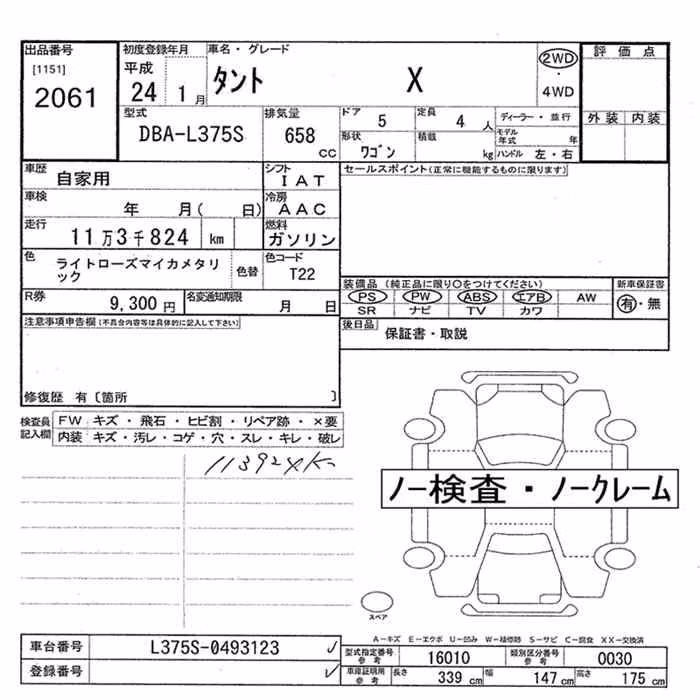 出品番号 初度登録年月 車名・グレード 評価点
[1151] 平成 タント X 2WD
2061 24 1月 ・ 4WD
外装 内装
型式 排気量 ドア 5 定員 4人 ディーラー・並行
DBA-L375S 658 CC 形状 ワゴン 積載 kg モデル年式 年
ハンドル 左・右
車歴 自家用 シフト IAT セールスポイント(正常に機能するものに限ります)
車検 年 月( 日) 冷房 AAC
走行 11万3千824 km 燃料 ガソリン
色 ライトローズマイカメタリック 色替 色コード T22
装備品 (純正品に限り○をつけてください) 新車保証書
R券 9,300円 名変通知期限 月 日 PS PW ABS エアB AW 有・無
SR ナビ TV カワ
注意事項申告欄(不具合内容等は具体的に記入して下さい) 後日品 保証書・取説
修復歴 有〔箇所 〕
検査員記入欄 FW キズ・飛石・ヒビ割・リペア跡・×要
内装 キズ・汚レ・コゲ・穴・スレ・キレ・破レ
ノー検査・ノークレーム
スペア
A-キズ E-エクボ U-凹み W-補修跡 S-サビ C-腐食 XX-交換済
車台番号 L375S-0493123 ✓ 型式指定番号 参考 16010 類別区分番号 参考 0030
登録番号 ✓ 車庫証明用 参考 長さ 339 cm 幅 147 cm 高さ 175 cm